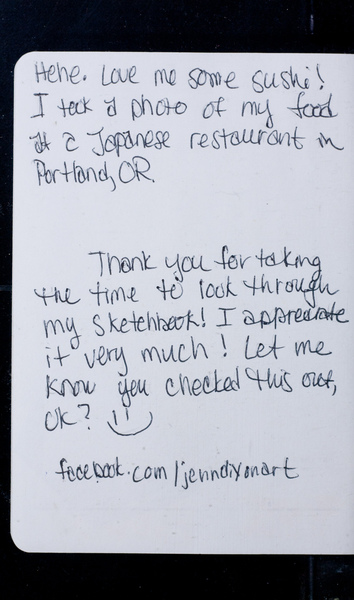 Hehe. Love me some sushi!
I took a photo of my food
at a Japanese restaurant in
Portland, OR.
Thank you for taking
the time to look through
my sketchbook! I appreciate
it very much! Let me
know you checked this out,
ok? :)
facebook.com/jenndixonart